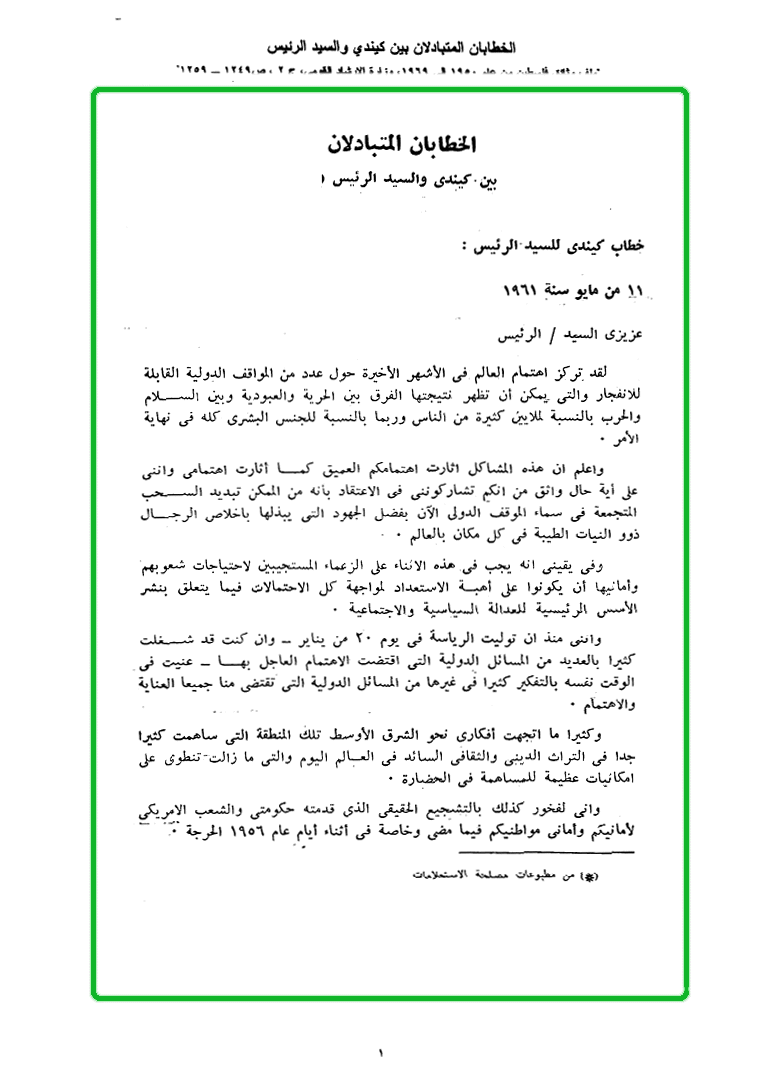 الخطابان المتبادلان بين كيندي والسيد الرئيس
فلسطين من عام ١٩٥٠ الى ١٩٦٩، وزارة الارشاد القومى، ج ٢، ص ١٢٤٩ – ١٢٥٩"
الخطابان المتبادلان
بين كيندى والسيد الرئيس
خطاب كيندى للسيد الرئيس :
١١ من مايو سنة ١٩٦١
عزيزى السيد / الرئيس
لقد تركز اهتمام العالم فى الأشهر الأخيرة حول عدد من المواقف الدولية القابلة
للانفجار والتى يمكن أن تظهر نتيجتها الفرق بين الحرية والعبودية وبين الســـلام
والحرب بالنسبة لملايين كثيرة من الناس وربما بالنسبة للجنس البشرى كله فى نهاية
الأمر ٠
واعلم ان هذه المشاكل اثارت اهتمامكم العميق كمـــا أثارت اهتمامى واننى
على أية حال واثق من انكم تشاركوننى فى الاعتقاد بأنه من الممكن تبديد الســـحب
المتجمعة فى سماء الموقف الدولى الآن بفضل الجهود التى يبذلها باخلاص الرجـــال
ذوو النيات الطيبة فى كل مكان بالعالم ٠
وفى يقينى انه يجب فى هذه الاثناء على الزعماء المستجيبين لاحتياجات شعوبهم
وأمانيها أن يكونوا على أهبة الاستعداد لمواجهة كل الاحتمالات فيما يتعلق بنشر
الأسس الرئيسية للعدالة السياسية والاجتماعية ٠
واننى منذ ان توليت الرياسة فى يوم ٢٠ من يناير – وان كنت قد شـــغلت
كثيرا بالعديد من المسائل الدولية التى اقتضت الاهتمام العاجل بهـــا – عنيت فى
الوقت نفسه بالتفكير كثيرا فى غيرها من المسائل الدولية التى تقتضى منا جميعا العناية
والاهتمام ٠
وكثيرا ما اتجهت أفكارى نحو الشرق الأوسط تلك المنطقة التى ساهمت كثيرا
جدا فى التراث الدينى والثقافى السائد فى العـالم اليوم والتى ما زالت تنطوى على
امكانيات عظيمة للمساهمة فى الحضارة ٠
وانى لفخور كذلك بالتشجيع الحقيقى الذى قدمته حكومتى والشعب الامريكى
لأمانيكم وأمانى مواطنيكم فيما مضى وخاصة فى أثناء أيام عام ١٩٥٦ الحرجة ٠
(*) من مطبوعات مصلحة الاستعلامات
١